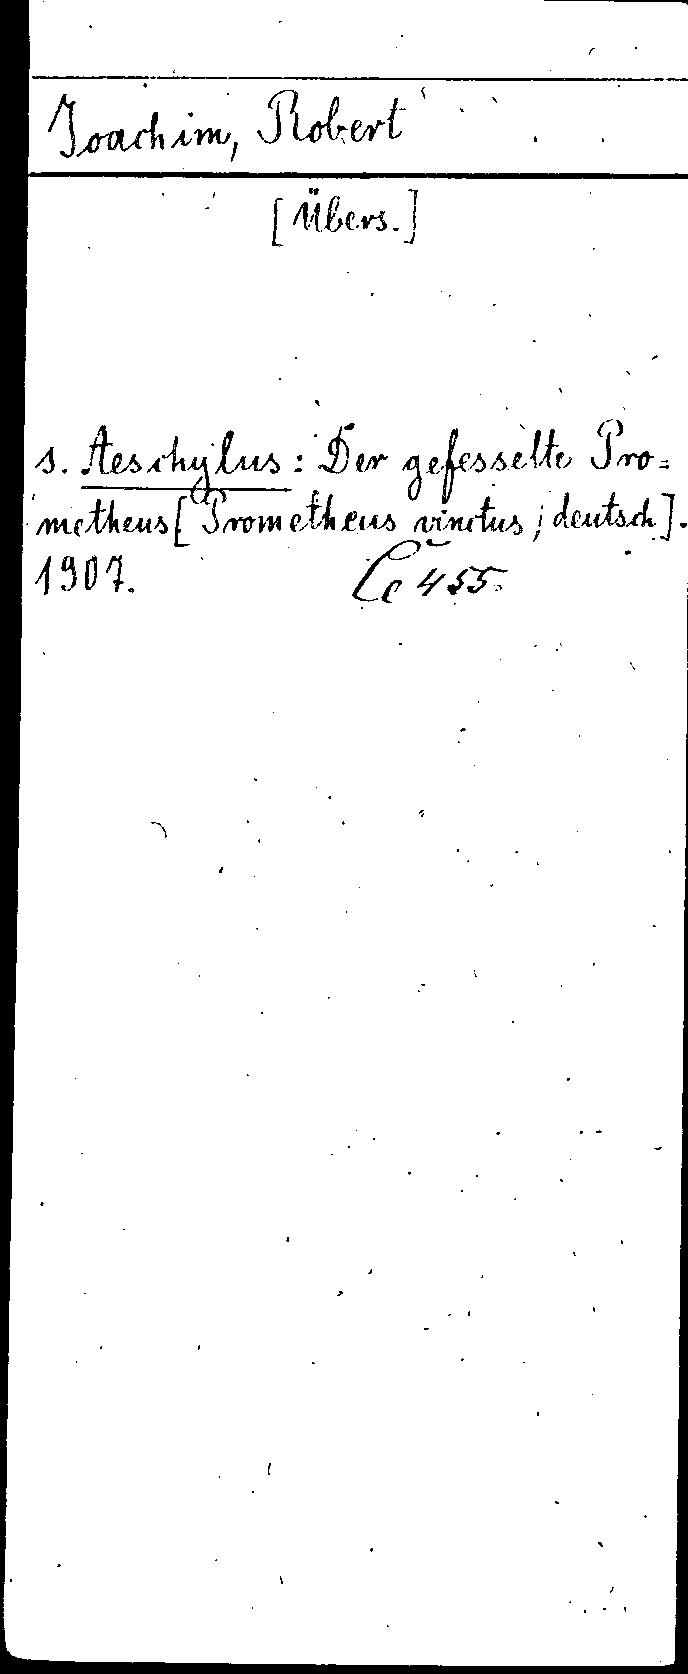 Joachim, Robert
[Übers.]
s. Aeschylus: Der gefesselte Pro=
metheus [Prometheus vinctus; deutsch].
1907. Ce 455.